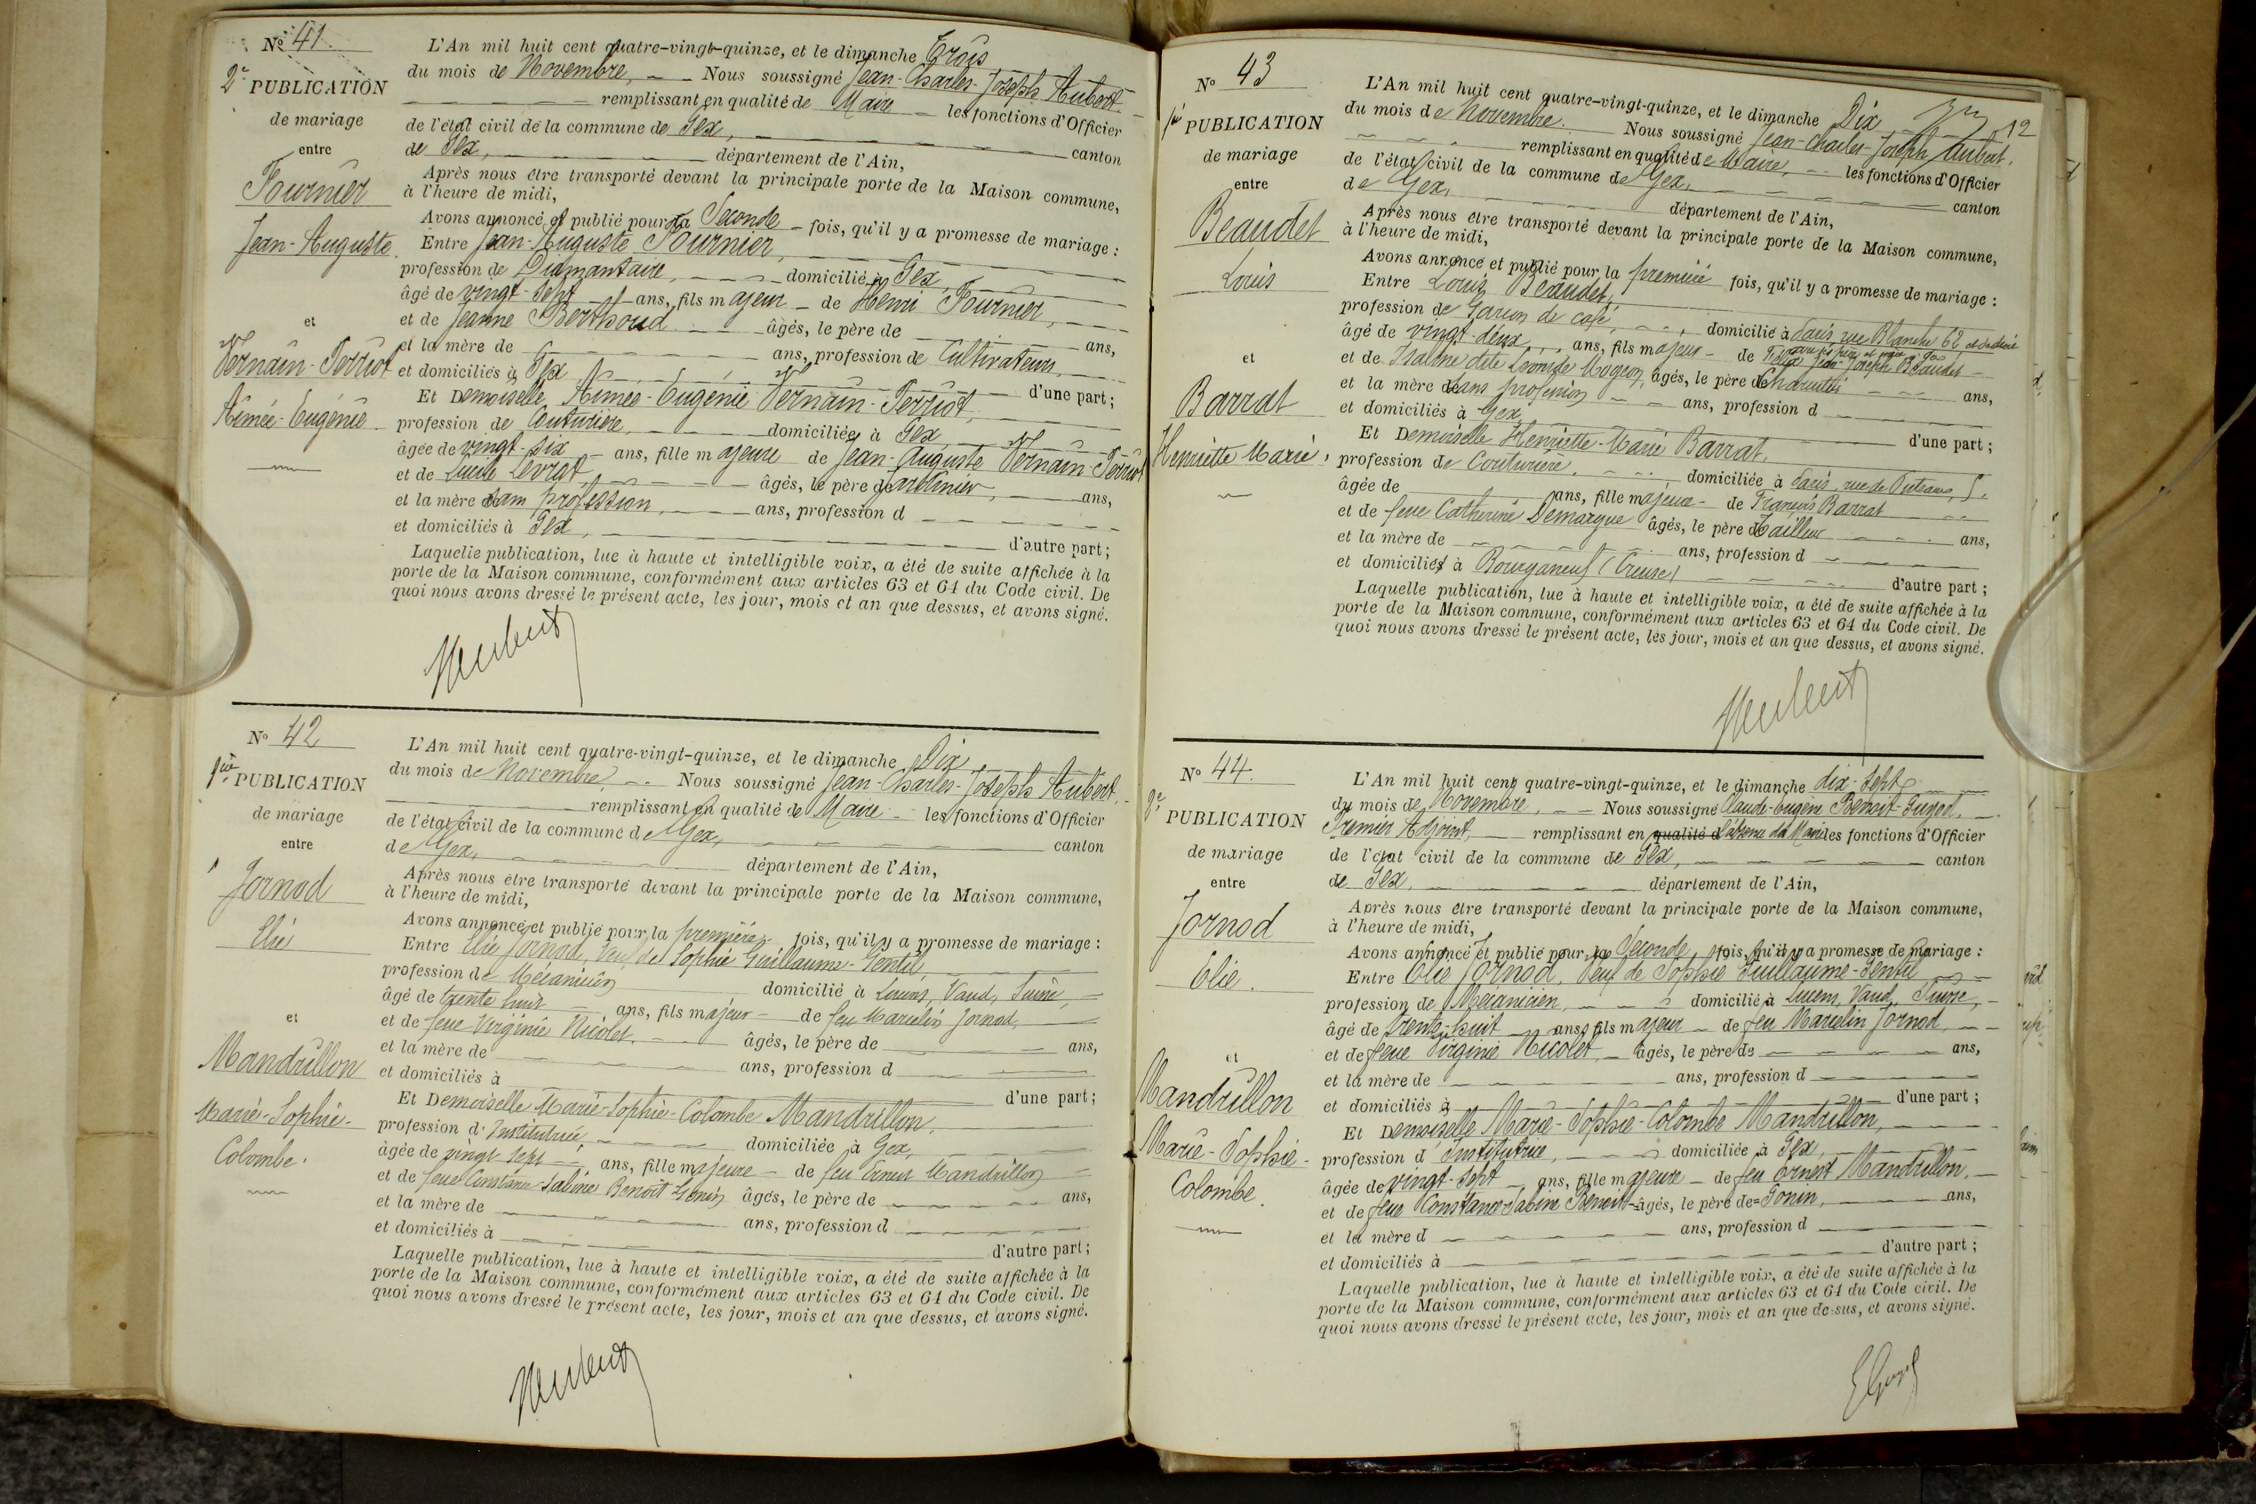 No 41.
2e PUBLICATION
de mariage
entre
Fournier
Jean-Auguste.
et
Vernain-Terriot
Aimée-Eugénie
L'An mil huit cent quatre-vingt-quinze, et le dimanche Trois
du mois de Novembre, Nous soussigné Jean-Charles-Joseph Aubert
remplissant en qualité de Maire les fonctions d'Officier
de l'état civil de la commune de Gex, canton
de Gex, département de l'Ain,
Après nous être transporté devant la principale porte de la Maison commune,
à l'heure de midi,
Avons annoncé et publié pour la Seconde fois, qu'il y a promesse de mariage :
Entre Jean-Auguste Fournier,
profession de Diamantaire, domicilié à Gex,
âgé de vingt-sept ans, fils majeur de Henri Fournier,
et de Jeanne Berthoud âgés, le père de ans,
et la mère de ans, profession de Cultivateurs,
et domiciliés à Gex d'une part ;
Et Demoiselle Aimée-Eugénie Vernain-Terriot,
profession de Couturière, domiciliée à Gex,
âgée de vingt-six ans, fille majeure de Jean-Auguste Vernain-Terriot
et de Lucie Levrat, âgés, le père de Jardinier, ans,
et la mère sans profession, ans, profession d
et domiciliés à Gex, d'autre part ;
Laquelle publication, lue à haute et intelligible voix, a été de suite affichée à la
porte de la Maison commune, conformément aux articles 63 et 64 du Code civil. De
quoi nous avons dressé le présent acte, les jour, mois et an que dessus, et avons signé.
Aubert
No 42
1ère PUBLICATION
de mariage
entre
Jornod
Elie
et
Mandrillon
Marie-Sophie-
Colombe.
L'An mil huit cent quatre-vingt-quinze, et le dimanche Dix
du mois de Novembre, Nous soussigné Jean-Charles-Joseph Aubert,
remplissant en qualité de Maire les fonctions d'Officier
de l'état civil de la commune de Gex, canton
de Gex, département de l'Ain,
Après nous être transporté devant la principale porte de la Maison commune,
à l'heure de midi,
Avons annoncé et publié pour la première fois, qu'il y a promesse de mariage :
Entre Elie Jornod, Veuf de Sophie Guillaume-Gentil,
profession de Mécanicien domicilié à Lucens, Vaud, Suisse,
âgé de trente huit ans, fils majeur de feu Marcelin Jornod,
et de feue Virginie Nicolet, âgés, le père de ans,
et la mère de ans, profession d
et domiciliés à d'une part ;
Et Demoiselle Marie-Sophie-Colombe Mandrillon,
profession d'Institutrice, domiciliée à Gex,
âgée de vingt-sept ans, fille majeure de feu Ernest Mandrillon
et de feue Constance-Sabine Benoît-Gonin âgés, le père de ans,
et la mère de ans, profession d
et domiciliés à d'autre part ;
Laquelle publication, lue à haute et intelligible voix, a été de suite affichée à la
porte de la Maison commune, conformément aux articles 63 et 64 du Code civil. De
quoi nous avons dressé le présent acte, les jour, mois et an que dessus, et avons signé.
Aubert
No 43
1ère PUBLICATION
de mariage
entre
Beaudet
Louis
et
Barrat
Henriette Marie.
12
L'An mil huit cent quatre-vingt-quinze, et le dimanche Dix
du mois de Novembre. Nous soussigné Jean-Charles-Joseph Aubert,
remplissant en qualité de Maire, les fonctions d'Officier
de l'état civil de la commune de Gex, canton
de Gex, département de l'Ain,
Après nous être transporté devant la principale porte de la Maison commune,
à l'heure de midi,
Avons annoncé et publié pour la première fois, qu'il y a promesse de mariage :
Entre Louis Beaudet,
profession de Garçon de café, domicilié à Paris, rue Blanche 62
âgé de vingt-deux ans, fils majeur de Jean Joseph Beaudet
et de dite Mugnon, âgés, le père de Charcutier ans,
et la mère sans profession ans, profession d
et domiciliés à Gex d'une part ;
Et Demoiselle Henriette-Marie Barrat,
profession de Couturière, domiciliée à Paris, rue de Puteaux, 5.
âgée de ans, fille majeure de François Barrat
et de feue Catherine Demarque âgés, le père de Tailleur ans,
et la mère de ans, profession d
et domiciliés à Bourganeuf (Creuse) d'autre part ;
Laquelle publication, lue à haute et intelligible voix, a été de suite affichée à la
porte de la Maison commune, conformément aux articles 63 et 64 du Code civil. De
quoi nous avons dressé le présent acte, les jour, mois et an que dessus, et avons signé.
Aubert
No 44.
2e PUBLICATION
de mariage
entre
Jornod
Elie.
et
Mandrillon
Marie-Sophie-
Colombe.
L'An mil huit cent quatre-vingt-quinze, et le dimanche dix-sept
du mois de Novembre, Nous soussigné Claude-Eugène Benoit-Guyod,
Premier Adjoint, remplissant en qualité d l'absence du Maire les fonctions d'Officier
de l'état civil de la commune de Gex, canton
de Gex, département de l'Ain,
Après nous être transporté devant la principale porte de la Maison commune,
à l'heure de midi,
Avons annoncé et publié pour la Seconde fois, qu'il y a promesse de mariage :
Entre Elie Jornod, Veuf de Sophie Guillaume-Gentil
profession de Mécanicien, domicilié à Lucens, Vaud, Suisse,
âgé de trente-huit ans, fils majeur de feu Marcelin Jornod,
et de feue Virginie Nicolet, âgés, le père de ans,
et la mère de ans, profession d
et domiciliés à d'une part ;
Et Demoiselle Marie-Sophie-Colombe Mandrillon,
profession d'Institutrice, domiciliée à Gex,
âgée de vingt-sept ans, fille majeure de feu Ernest Mandrillon,
et de feue Constance-Sabine Benoit- âgés, le père de =Gonin, ans,
et la mère d ans, profession d
et domiciliés à d'autre part ;
Laquelle publication, lue à haute et intelligible voix, a été de suite affichée à la
porte de la Maison commune, conformément aux articles 63 et 64 du Code civil. De
quoi nous avons dressé le présent acte, les jour, mois et an que dessus, et avons signé.